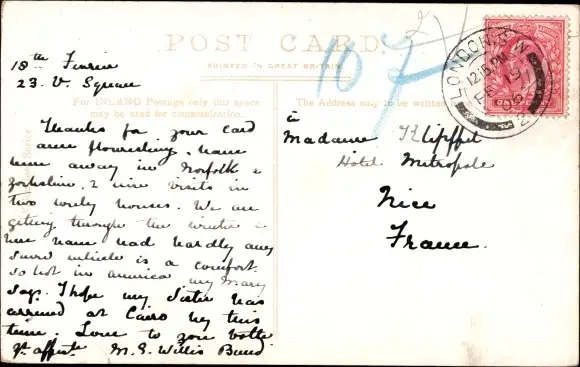 POST CARD
PRINTED IN GREAT BRITAIN
For INLAND Postage only this space
may be used for communication.
The Address may to be written
LONDON
12.15 PM
FE
18th
23. V. Square
Thanks for your card
am flourishing. have
been away in Norfolk &
Yorkshire, 2 nice visits in
two lovely houses. We are
getting through the winter &
here have had hardly any
snow which is a comfort.
so hot in america my Mary
says. I hope my Sister has
arrived at Cairo by this
time. Love to you both
yr affect M. E. Willis Bund
à
Madame
Hotel Metropole
Nice
France.